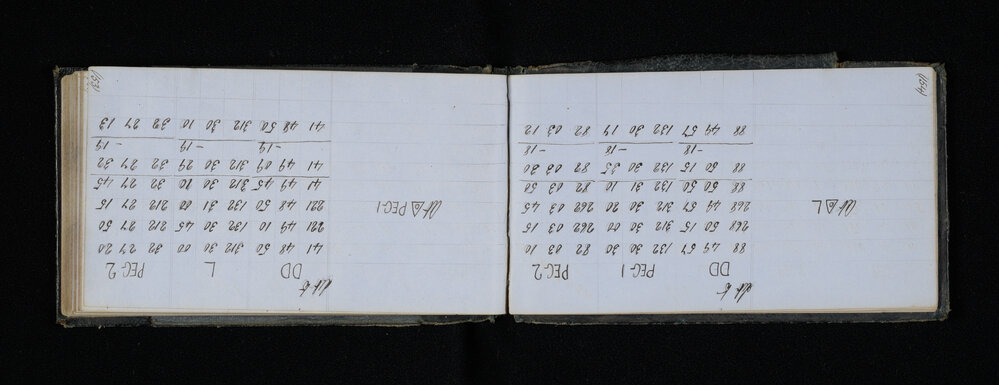 (154)
DD PEG-1 PEG-2
At △ L
88 49 57 132 30 30 82 03 10
268 50 15 312 30 00 262 03 15
268 49 57 312 30 40 262 03 45
88 50 50 132 31 10 82 03 50
88 50 15 132 30 35 82 03 30
-18 -18 -18
88 49 57 132 30 17 82 03 12
(153)
DD L PEG-2
At △ PEG-1
41 48 50 312 30 00 32 27 20
221 49 10 132 30 45 212 27 50
221 48 50 132 31 00 212 27 15
41 49 45 312 30 10 32 27 45
41 49 09 312 30 29 32 27 32
-19 -19 -19
41 48 50 312 30 10 32 27 13